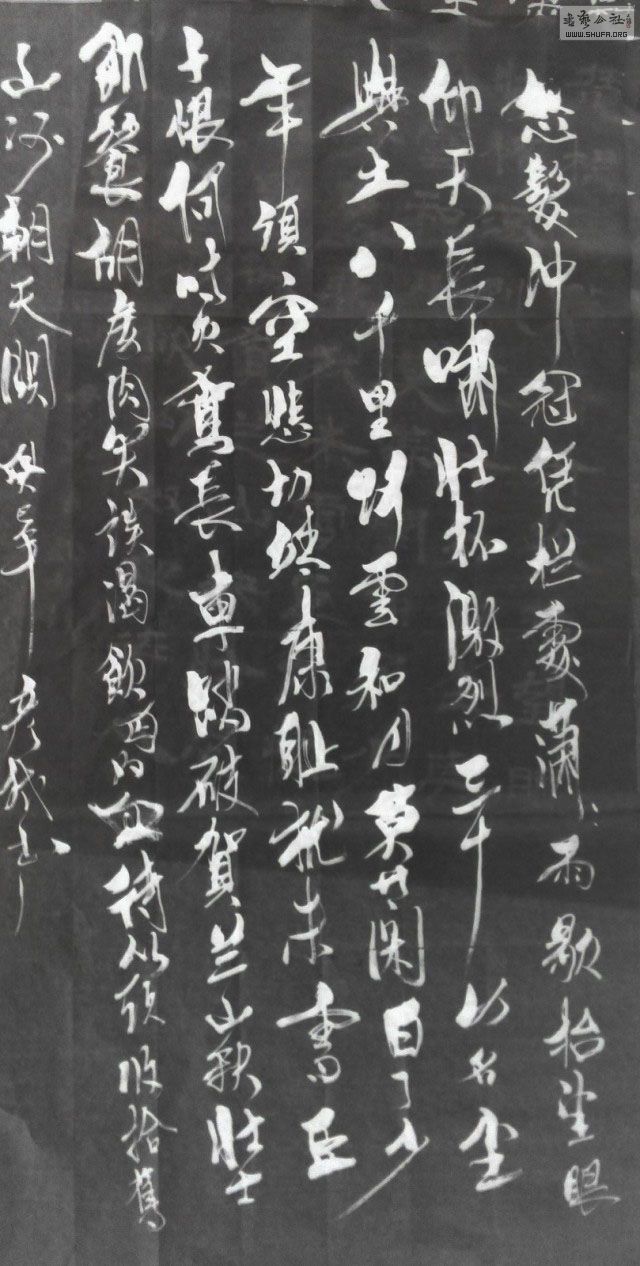 怒髮冲冠凭栏處瀟々雨歇抬望眼
仰天長啸壮怀激烈三十功名尘
與土八千里路雲和月莫等闲白了少
年頭空悲切靖康耻犹未雪臣
子恨何时灭駕長車踏破賀兰山缺壮士
飢餐胡虏肉笑談渴飲匈奴血待从頭收拾舊
山河朝天闕
书艺公社
WWW.SHUFA.ORG